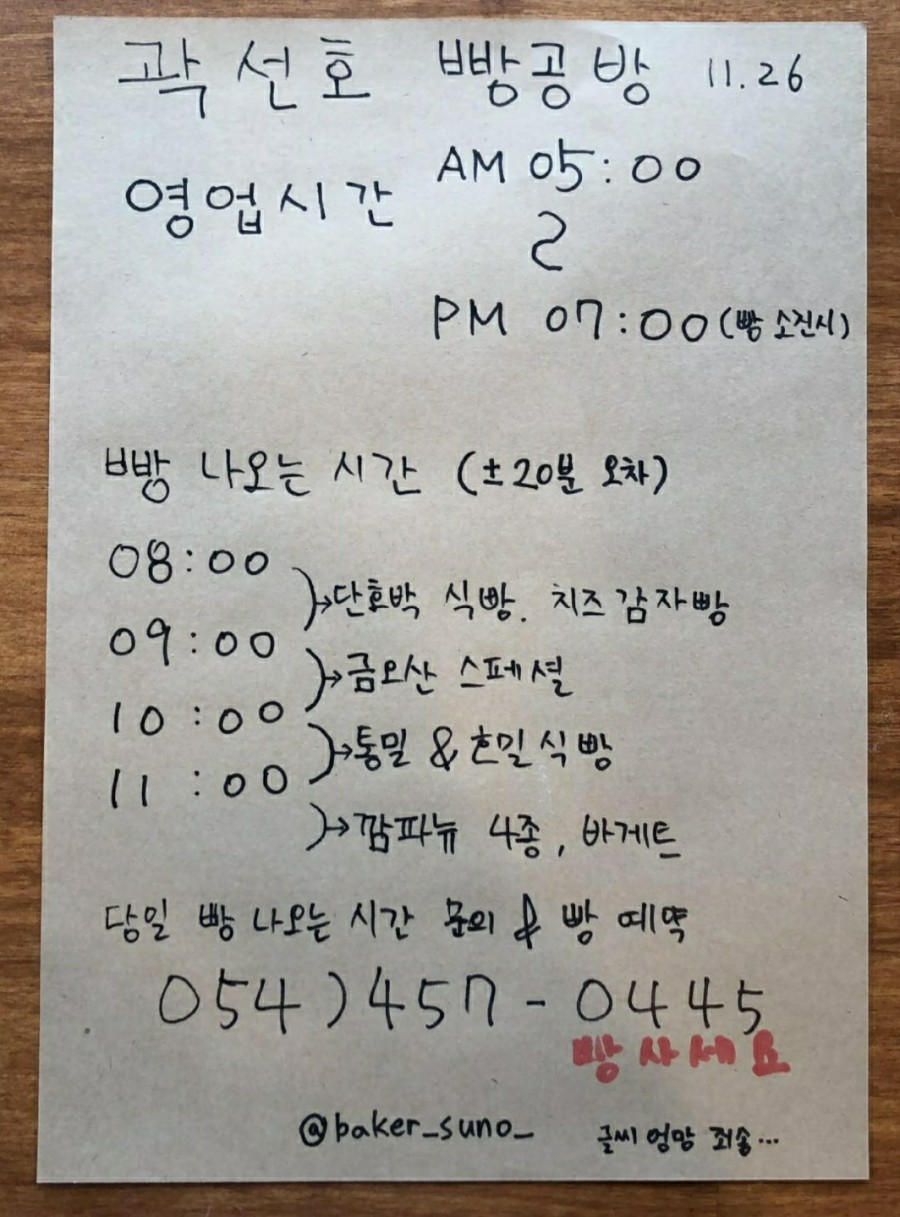 곽선호 빵공방 11.26
영업시간 AM 05:00
~
PM 07:00 (빵 소진시)
빵 나오는 시간 (±20분 오차)
08:00
→단호박 식빵. 치즈감자빵
09:00
→금오산 스페셜
10:00
→통밀 & 흐밀식빵
11:00
→깜파뉴 4종, 바게트
당일 빵 나오는 시간 문의 & 빵 예약
054)457-0445
빵사세요
@baker_suno_
글씨 엉망 죄송...